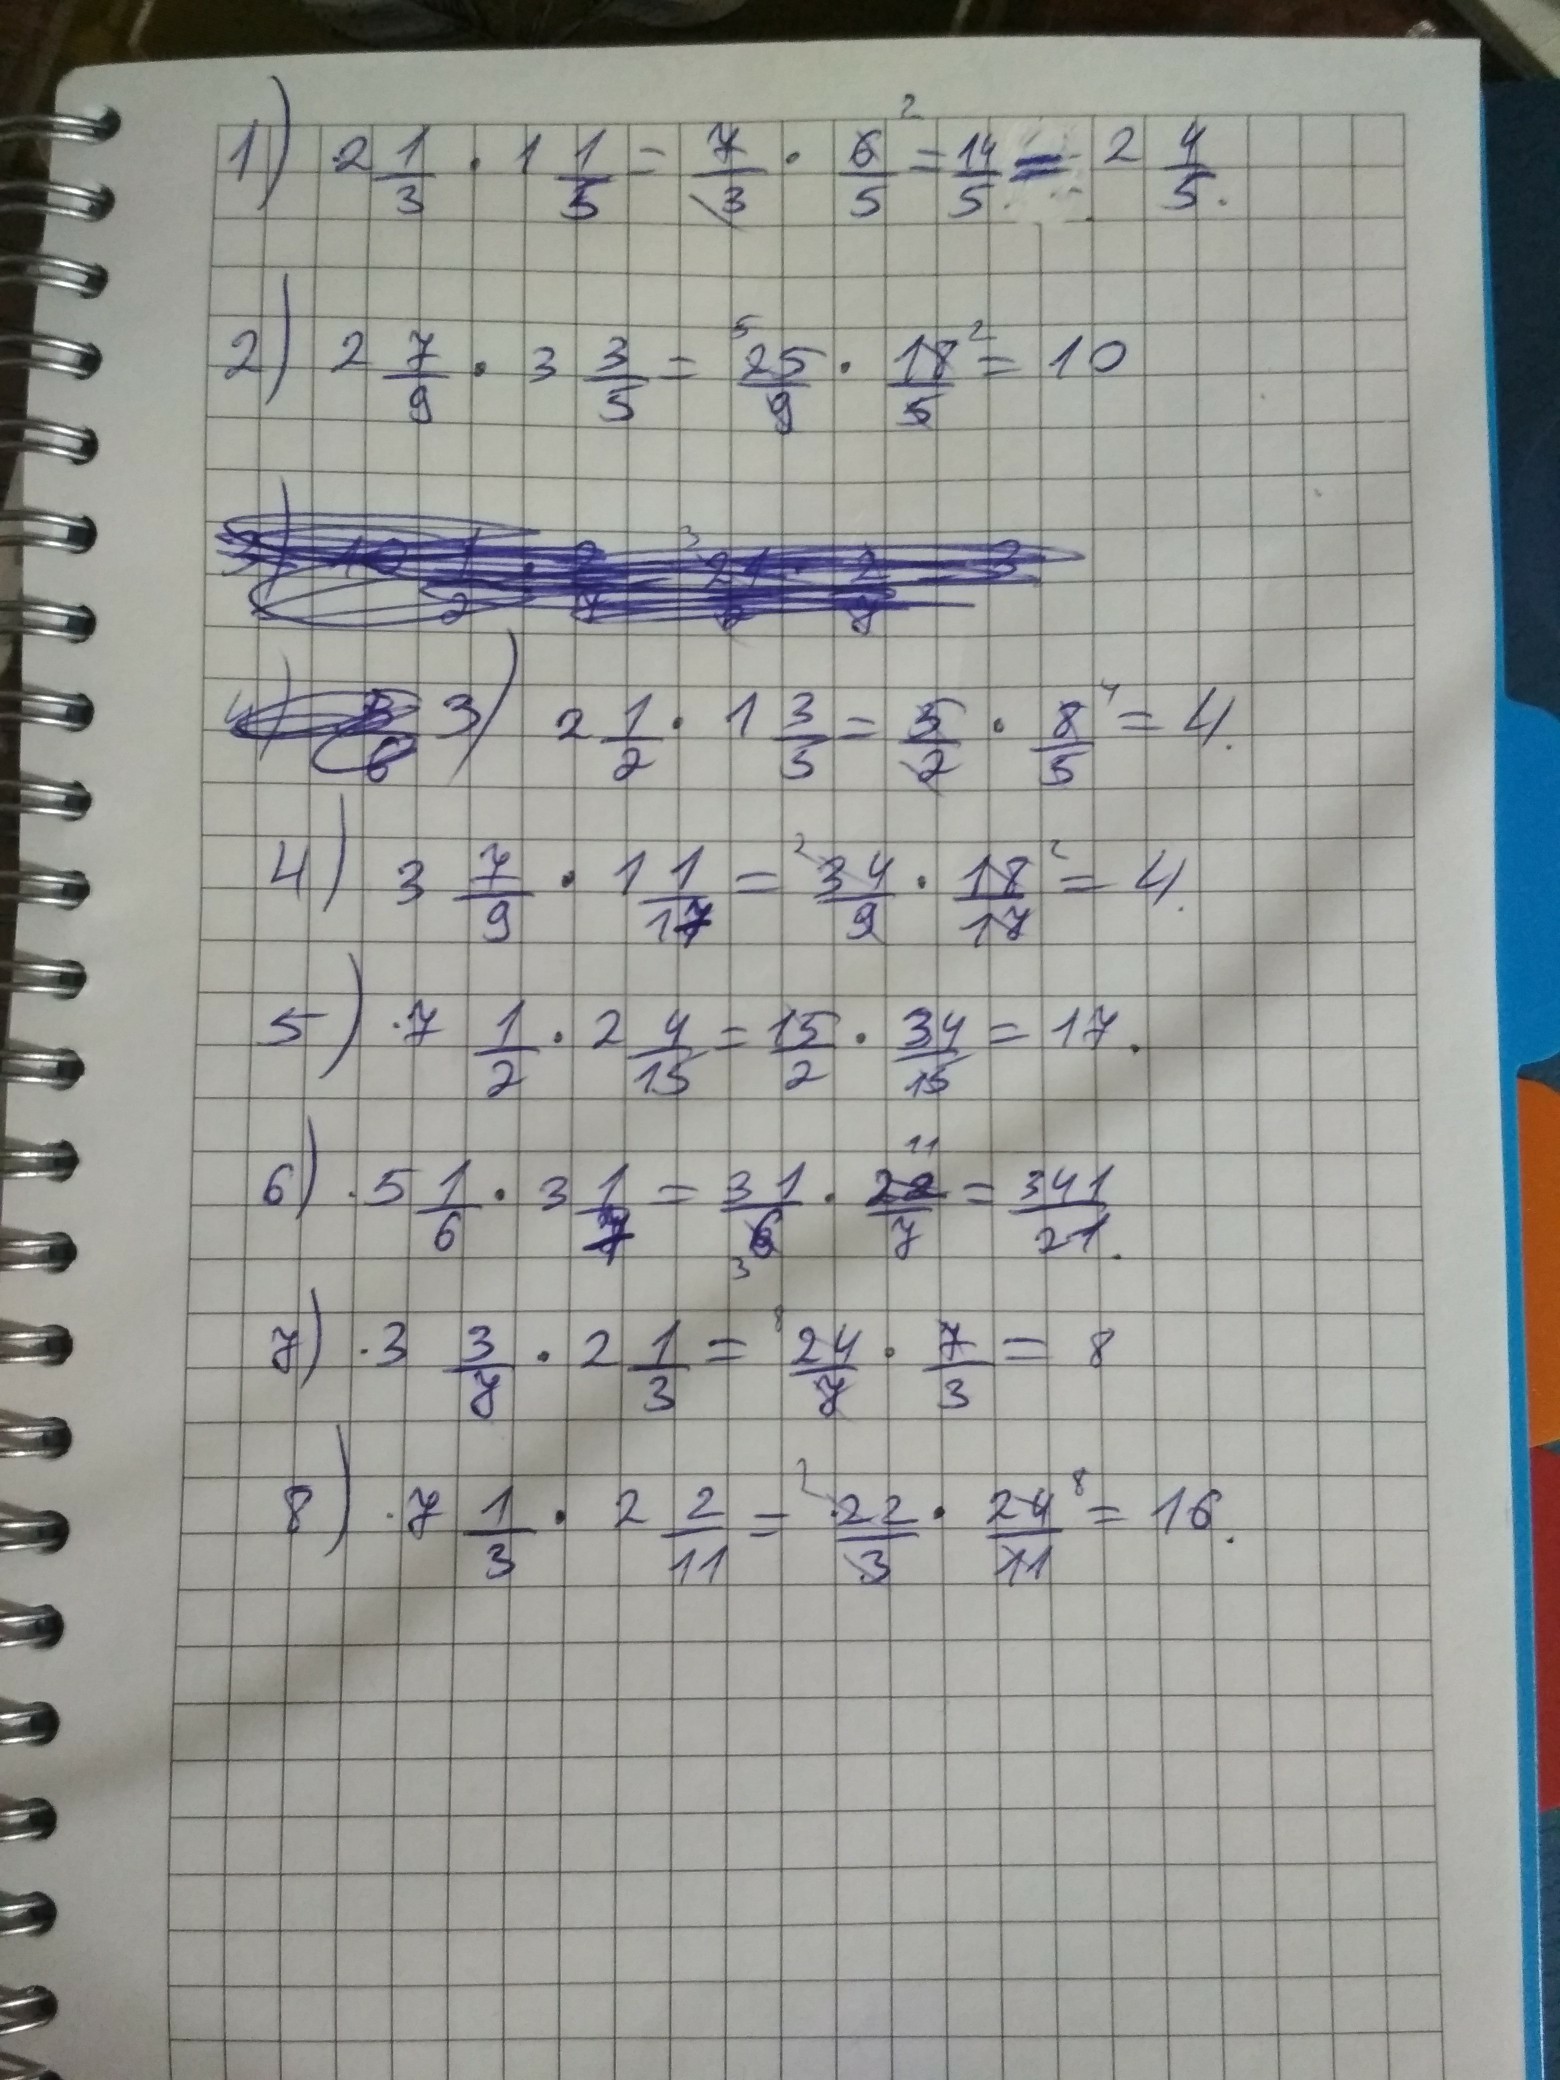 1) 2 1/3 · 1 1/5 = 7/3 · 6/5 ² = 14/5 = 2 4/5.
2) 2 7/9 · 3 3/5 = ⁵ 25/9 · 18/5 ² = 10
3) 2 1/2 · 1 3/5 = 5/2 · 8/5 ⁴ = 4.
4) 3 7/9 · 1 1/17 = ² 34/9 · 18/17 ² = 4.
5) · 7 1/2 · 2 4/15 = 15/2 · 34/15 = 17.
6) · 5 1/6 · 3 1/7 = 31/6 ₃ · 22/7 ¹¹ = 341/21.
7) · 3 3/7 · 2 1/3 = ⁸ 24/7 · 7/3 = 8
8) · 7 1/3 · 2 2/11 = ² 22/3 · 24/11 ⁸ = 16.